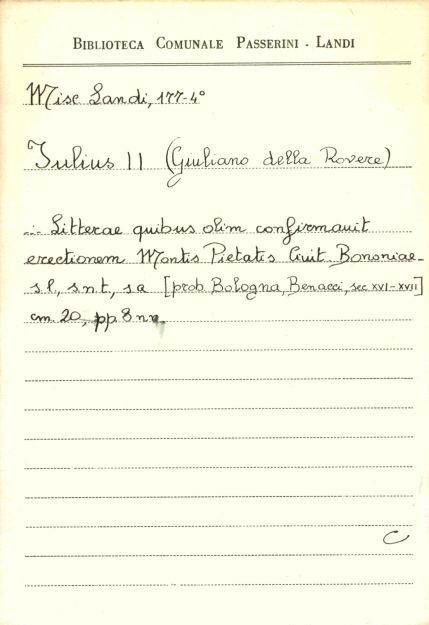 BIBLIOTECA COMUNALE PASSERINI - LANDI
Misc Landi, 177-4°
Iulius II (Giuliano della Rovere)
-:- Litterae quibus olim confirmauit
erectionem Montis Pietatis Civit. Bononiae-
s l, s n t, s a [prob Bologna, Benacci, sec XVI-XVII]
cm. 20, pp 8 nn.
C